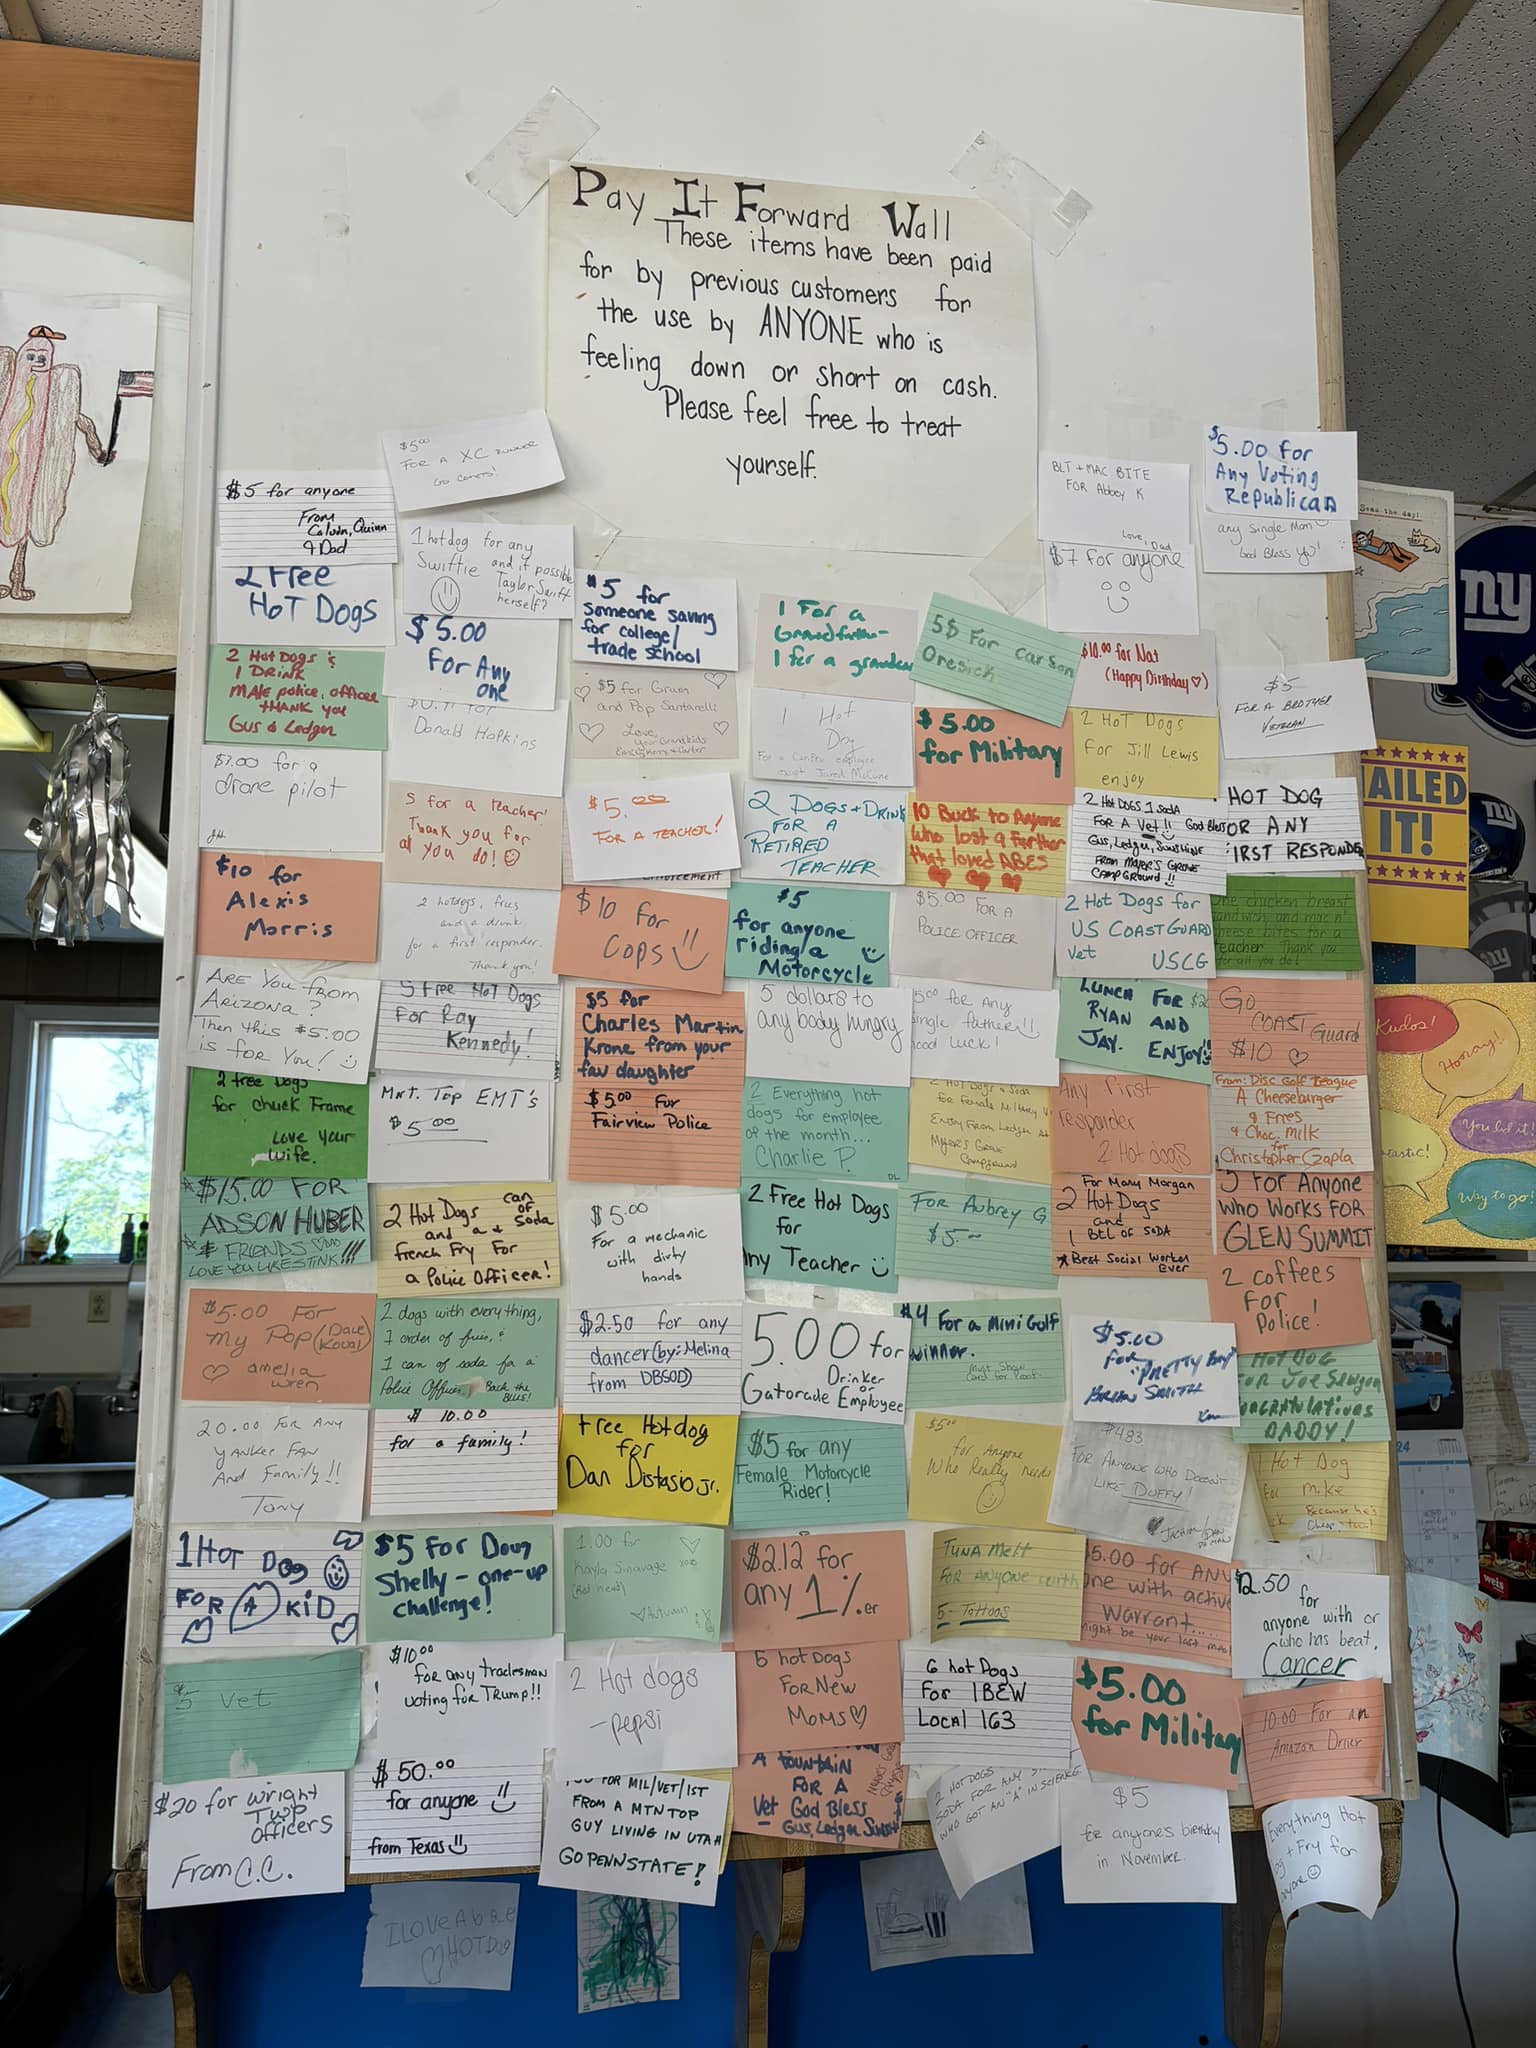 Pay It Forward Wall
These items have been paid
for by previous customers for
the use by ANYONE who is
feeling down or short on cash.
Please feel free to treat
yourself.
$5.00
FOR A XC runner
Go Comets!
$5 for anyone
From
Calvin, Quinn
& Dad
2 Free
HOT DOGS
2 Hot Dogs &
1 DRINK
MALE police, officer
THANK you
Gus & Ledger
drone pilot
$10 for
Alexis
Morris
ARE YOU FROM
ARIZONA?
Then this $5.00
is for You!
2 free Dogs
for Chuck Frame
Love your
wife.
$15.00 FOR
ADSON HUBER
FRIENDS
$5.00 For
my Pop (Dave
Koval)
amelia
wren
20.00 FOR ANY
YANKEE FAN
And Family!!
Tony
1 HOT DOG
FOR A KID
$5 vet
$20 for wright
Twp
Officers
From C.C.
1 hotdog for any
Swiftie and if possible
Taylor Swift
herself?
$5.00
For Any
one
Donald Hopkins
5 for a teacher!
Thank you for
all you do!
2 hotdogs, fries
and a drink,
for a first responder.
Thank you!
5 Free HOT DOGS
For Ray
Kennedy!
Mnt. Top EMT's
$5.00
2 Hot Dogs can
and a of
Soda
french Fry For
a Police OFFicer!
2 dogs with everything,
1 order of fries, &
1 can of soda for a
Police Officer. Back the
BLUE!
$10.00
for a family!
$5 For Doug
Shelly - one-up
challenge!
$10.00
for any tradesman
voting for Trump!!
$50.00
for anyone
from Texas
$5 for
someone saving
for college/
trade school
$5 for Gram
and Pop Santarelli
Love,
your Grandkids
$5.00
FOR A TEACHER!
$10 For
Cops
$5 for
Charles Martin
Krone from your
fav daughter
$5.00 For
Fairview Police
$5.00
For a mechanic
with dirty
hands
$2.50 for any
dancer (by: Melina
from DBSOD)
Free Hotdog
for
Dan Distasio Jr.
1.00 for
Kayla Sinavage
Autumn
2 Hot dogs
- pepsi
FOR MIL/VET/1ST
FROM A MTN TOP
GUY LIVING IN UTAH
GO PENN STATE!
1 For a
Grandfather
1 for a
1 Hot
Dog
2 DOGS + DRINK
FOR A
RETIRED
TEACHER
$5
for anyone
riding a
Motorcycle
5 dollars to
any body hungry
2 Everything hot
dogs for employee
of the month...
Charlie P.
DL
2 Free Hot Dogs
for
Any Teacher
5.00 for
Drinker
or
Gatorade Employee
$5 for any
Female Motorcycle
Rider!
$2.12 for
any 1%er
6 hot Dogs
For New
Moms
FOR A
Vet God Bless
Gus, Ledger
5$ For Carson
Oresick
$5.00
for Military
10 Buck to Anyone
who lost a father
that loved ABES
$5.00 FOR A
POLICE OFFICER
5.00 for Any
single father!!
good luck!
2 Hot Dogs & Soda
For Female Military
Campground
FOR Aubrey G
$5.-
$4 For a Mini Golf
winner.
Must Show
Card for Proof
$5.00
for Anyone
Who Really needs
TUNA MeLT
FOR ANYONE WITH
5 - TATTOOS
6 hot Dogs
For IBEW
LOCAL 163
2 HOT DOGS
SODA FOR ANY
WHO GOT AN "A" IN SCIENCE
BLT + MAC BITE
FOR Abbey K
Love, Dad
$7 for anyone
$10.00 for Nat
(Happy Birthday ♡)
2 HOT Dogs
For Jill Lewis
enjoy
2 HOT DOGS 1 SODA
FOR A Vet!! God Bless
Gus, Ledger, Sunshine
FROM MOYER'S GROVE
CAMPGROUND!!
2 Hot Dogs for
US COAST GUARD
Vet USCG
LUNCH FOR
RYAN AND
JAY. ENJOY!
Any First
responder
2 Hot dogs
For Mary Morgan
2 Hot Dogs
and
1 BTL of SODA
*Best Social Worker
Ever
$5.00
FOR
"PRETTY BOY"
BRIAN SMITH
$4.83
FOR ANYONE WHO DOESN'T
LIKE DUFFY!
$5.00 for ANY
one with active
warrant....
might be your last meal
$5.00
for Military
$5
for anyone's birthday
in November.
$5.00 for
Any Voting
Republican
any Single Mom
God Bless You!
$5
FOR A BROTHER
VETERAN
HOT DOG
FOR ANY
FIRST RESPONDER
One chicken breast
sandwich, and mac n'
cheese bites for a
teacher. Thank you
for all you do!
Go
COAST Guard
$10 ♡
From: Disc Golf League
A Cheeseburger
& Fries
& Choc. Milk
for
Christopher Czapla
5 For Anyone
Who Works FOR
GLEN SUMMIT
2 coffees
For
Police!
HOT DOG
CONGRATULATIONS
DADDY!
1 Hot Dog
For Mike
Because he's
$2.50
for
anyone with or
who has beat,
Cancer
10.00 For an
Amazon Driver
Everything Hot
Dog + Fry for
Anyone
I LOVE Abe
HOTDog
Seas the day!
ny
NAILED
IT!
Kudos!
Hooray!
You did it!
Way to go!
24
weis